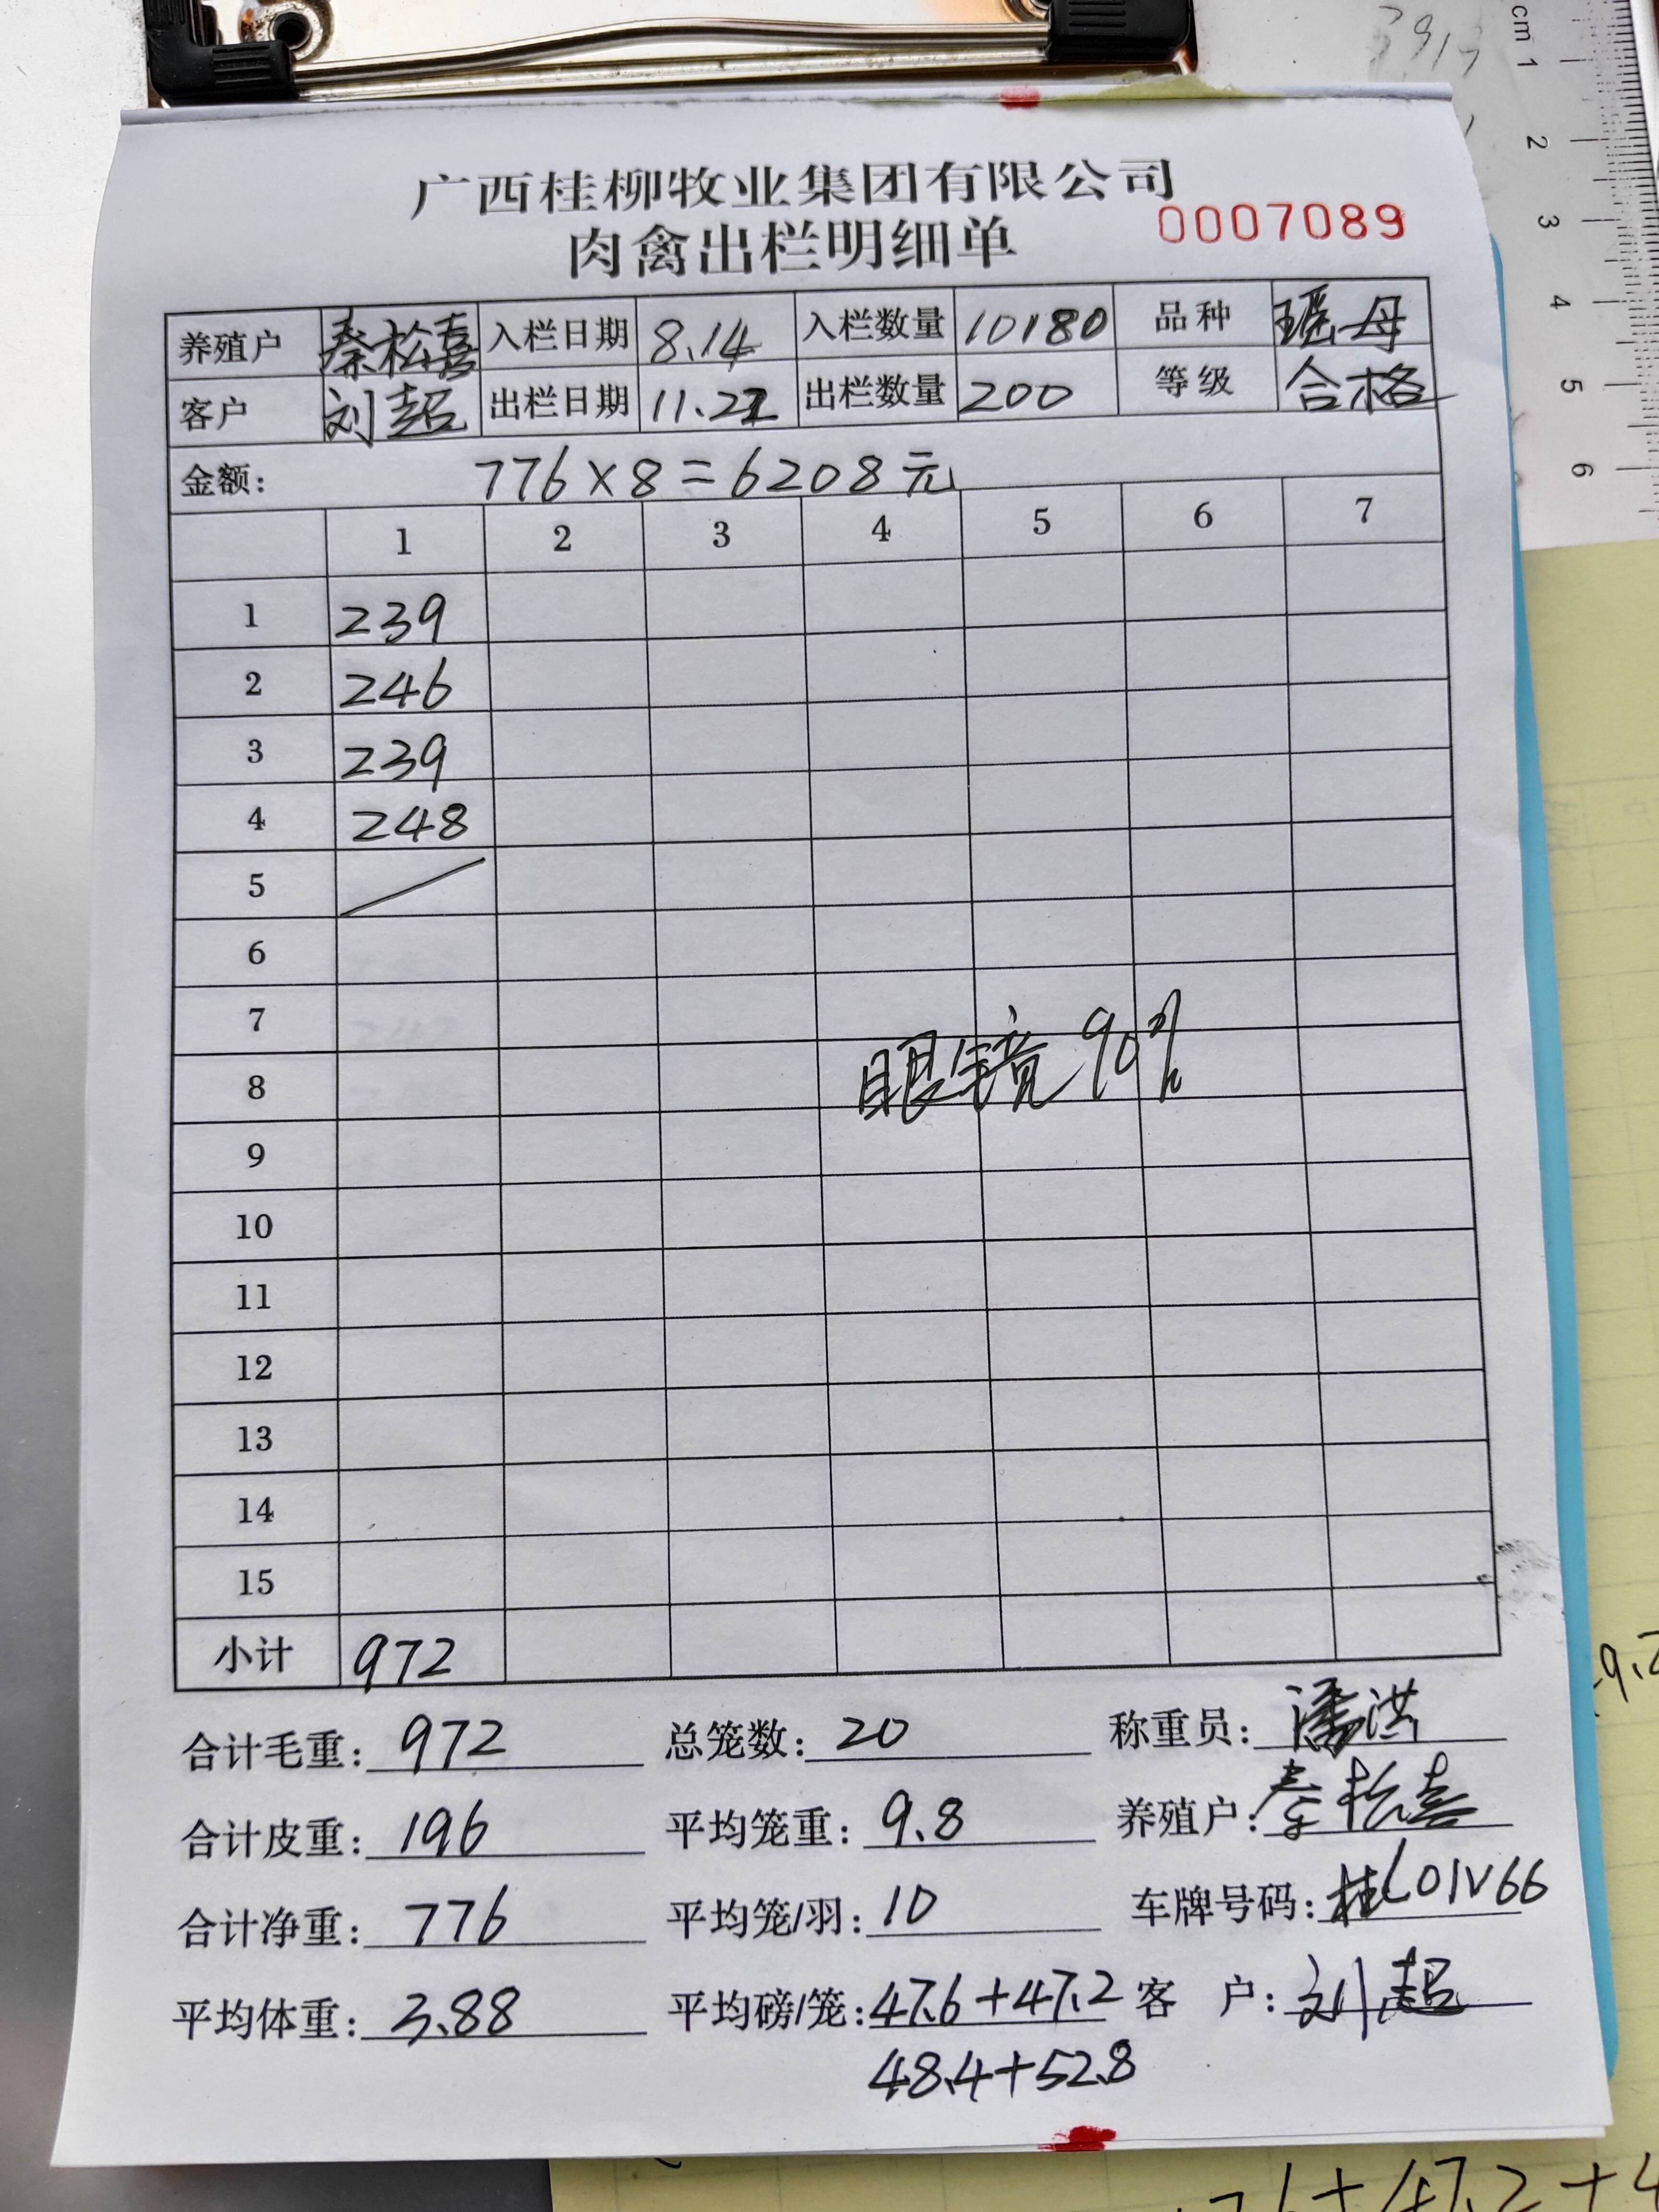 广西桂柳牧业集团有限公司
肉禽出栏明细单 0007089
养殖户 秦松喜 入栏日期 8.14 入栏数量 10180 品种 瑶母
客户 刘超 出栏日期 11.22 出栏数量 200 等级 合格
金额: 776×8=6208元
1 2 3 4 5 6 7
1 239
2 246
3 239
4 248
5
6
7
8 眼镜90%
9
10
11
12
13
14
15
小计 972
合计毛重: 972 总笼数: 20 称重员: 潘洪
合计皮重: 196 平均笼重: 9.8 养殖户: 秦松喜
合计净重: 776 平均笼/羽: 10 车牌号码: 桂L01V66
平均体重: 3.88 平均磅/笼: 47.6+47.2 客 户: 刘超
48.4+52.8
cm 1 2 3 4 5 6